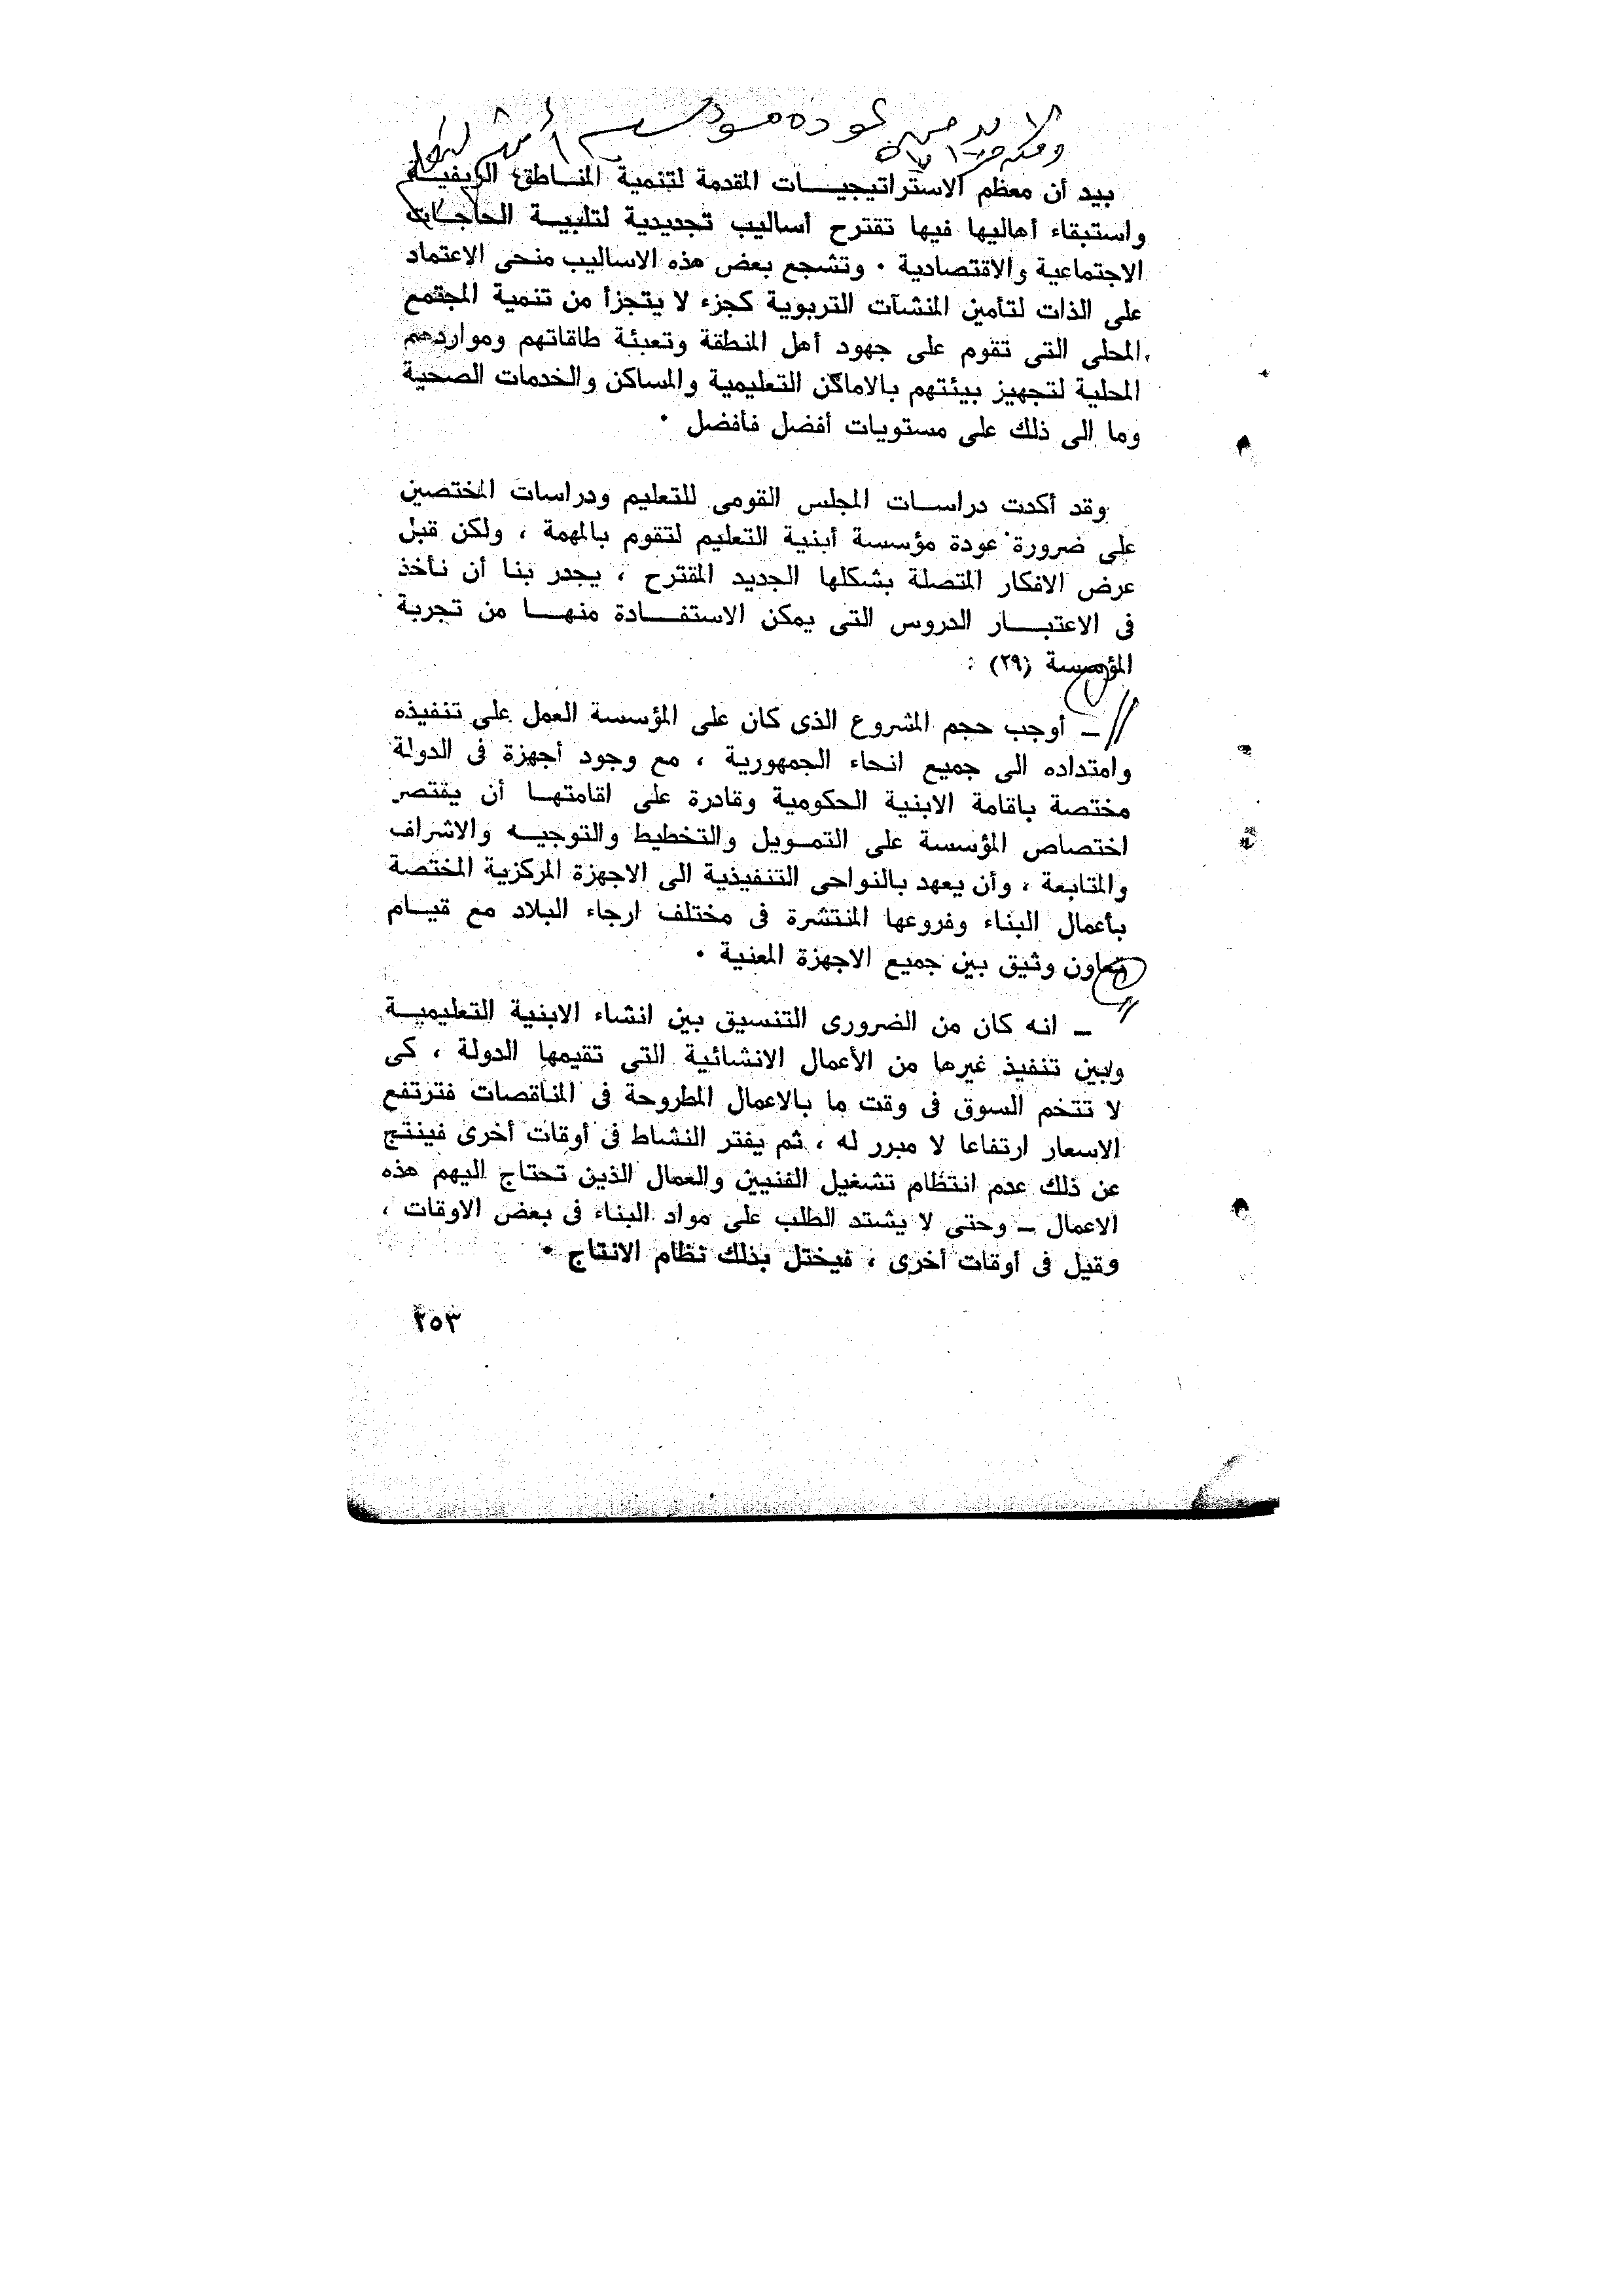 لابد من عودة مؤسسة أبنية التعليم
بيد أن معظم الاستراتيجيات المقدمة لتنمية المناطق الريفية
واستبقاء أهاليها فيها تقترح أساليب تجديدية لتلبية الحاجات
الاجتماعية والاقتصادية ٠ وتشجع بعض هذه الاساليب منحى الاعتماد
على الذات لتأمين المنشآت التربوية كجزء لا يتجزأ من تنمية المجتمع
المحلى التى تقوم على جهود أهل المنطقة وتعبئة طاقاتهم ومواردهم
المحلية لتجهيز بيئتهم بالاماكن التعليمية والمساكن والخدمات الصحية
وما الى ذلك على مستويات أفضل فأفضل ٠
وقد أكدت دراسات المجلس القومى للتعليم ودراسات المختصين
على ضرورة عودة مؤسسة أبنية التعليم لتقوم بالمهمة ، ولكن قبل
عرض الافكار المتصلة بشكلها الجديد المقترح ، يجدر بنا أن نأخذ
فى الاعتبار الدروس التى يمكن الاستفادة منها من تجربة
المؤسسة (٢٩) :
ـ أوجب حجم المشروع الذى كان على المؤسسة العمل على تنفيذه
وامتداده الى جميع انحاء الجمهورية ، مع وجود أجهزة فى الدولة
مختصة باقامة الابنية الحكومية وقادرة على اقامتها أن يقتصر
اختصاص المؤسسة على التمويل والتخطيط والتوجيه والاشراف
والمتابعة ، وأن يعهد بالنواحى التنفيذية الى الاجهزة المركزية المختصة
بأعمال البناء وفروعها المنتشرة فى مختلف ارجاء البلاد مع قيام
تعاون وثيق بين جميع الاجهزة المعنية ٠
ـ انه كان من الضرورى التنسيق بين انشاء الابنية التعليمية
وبين تنفيذ غيرها من الأعمال الانشائية التى تقيمها الدولة ، كى
لا تتخم السوق فى وقت ما بالاعمال المطروحة فى المناقصات فترتفع
الاسعار ارتفاعا لا مبرر له ، ثم يفتر النشاط فى أوقات أخرى فينتج
عن ذلك عدم انتظام تشغيل الفنيين والعمال الذين تحتاج اليهم هذه
الاعمال ـ وحتى لا يشتد الطلب على مواد البناء فى بعض الاوقات ،
وقيل فى أوقات أخرى ، فيختل بذلك نظام الانتاج ٠
٢٥٣